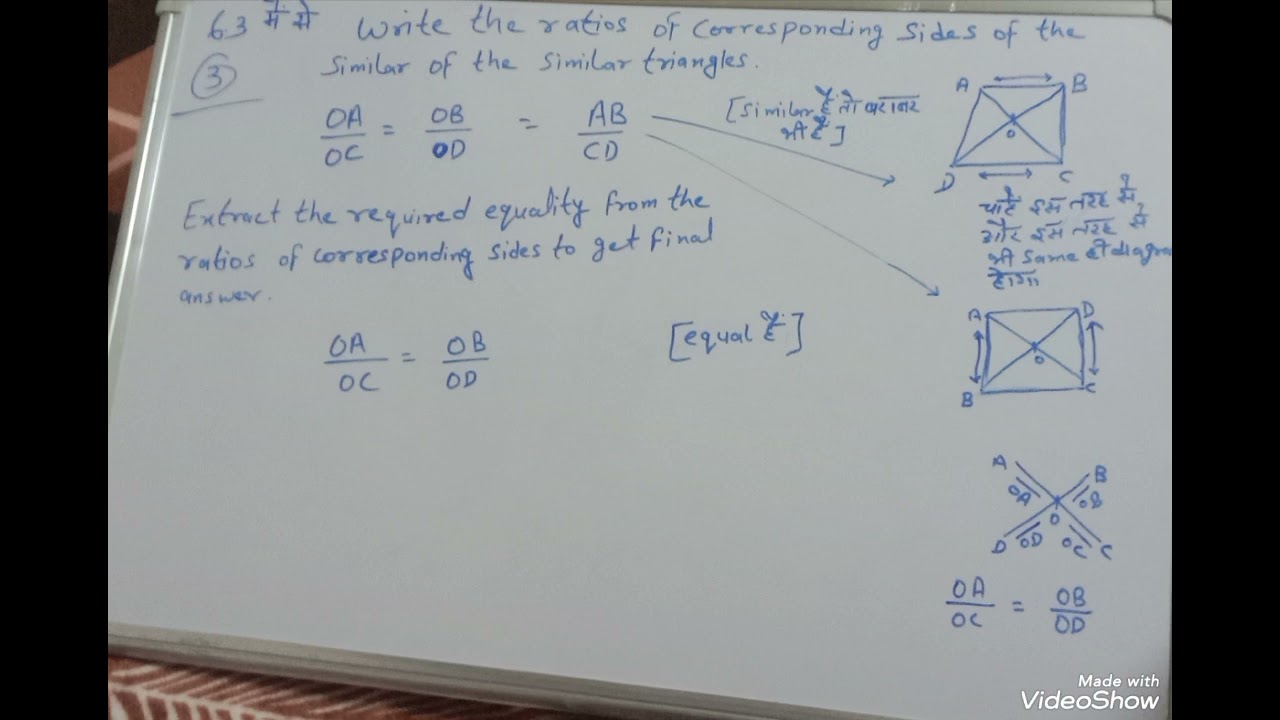 6.3 में से Write the ratios of corresponding sides of the
③ similar of the similar triangles.
OA/OC = OB/OD = AB/CD
[Similar हैं तो बराबर
भी हैं]
A B
O
D C
चाहे इस तरह से
और इस तरह से
भी same ही diagra
होगा
Extract the required equality from the
ratios of corresponding sides to get final
answer.
OA/OC = OB/OD
[equal हैं]
A D
O
B C
A B
OA OB
O
D OD OC C
OA/OC = OB/OD
Made with
VideoShow